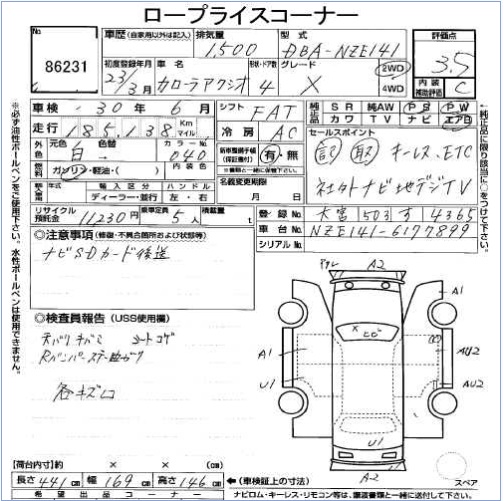 ロープライスコーナー
86231
車歴 (自家用以外は記入) 排気量 1,500 型式 DBA-NZE141 評価点 3.5
初度登録年月 23/3月 車名 カローラアクシオ 形状・ドア数 4 グレード X 2WD 4WD 内装補助評価 C
車検 30年 6月 シフト FAT 純正品 SR 純AW PS PW
カワ TV ナビ エアB
走行 185,138 Km マイル 冷房 AC セールスポイント
外色 元色 白 色替 カラーNo 040 新車整備手帳(保証書付) 有・無 記 取 キーレス、ETC
燃料 ガソリン・軽油・( ) ※一緒に送付して下さい。
モデル年式 輸入区分 ハンドル 名義変更期限 社外ナビ地デジTV
ディーラー・並行 左・右 月 日
リサイクル預託金 11230円 乗車定員 5人 積載量 t 登録No 大宮 503 す 4365
車台No NZE141-6177899
シリアルNo
◎注意事項 (修復・不具合箇所および状態等)
ナビSDカード後送
◎検査員報告 (USS使用欄)
天バリキバミ シートコゲ
Rバンパーステー曲ガリ
各キズ凹
A2
A1
A1
U1
AU2
AU2
U1
A2
スペア
【荷台内寸】 × × (cm)
長さ 441cm 幅 169cm 高さ 146cm ←(車検証上の寸法)
希望出品コーナー ナビロム・キーレス・リモコン等は、譲渡書類と一緒に送付して下さい。
※必ず油性ボールペンをご使用下さい。水性ボールペンは使用できません。
純正品に限り該当に○をつけて下さい。